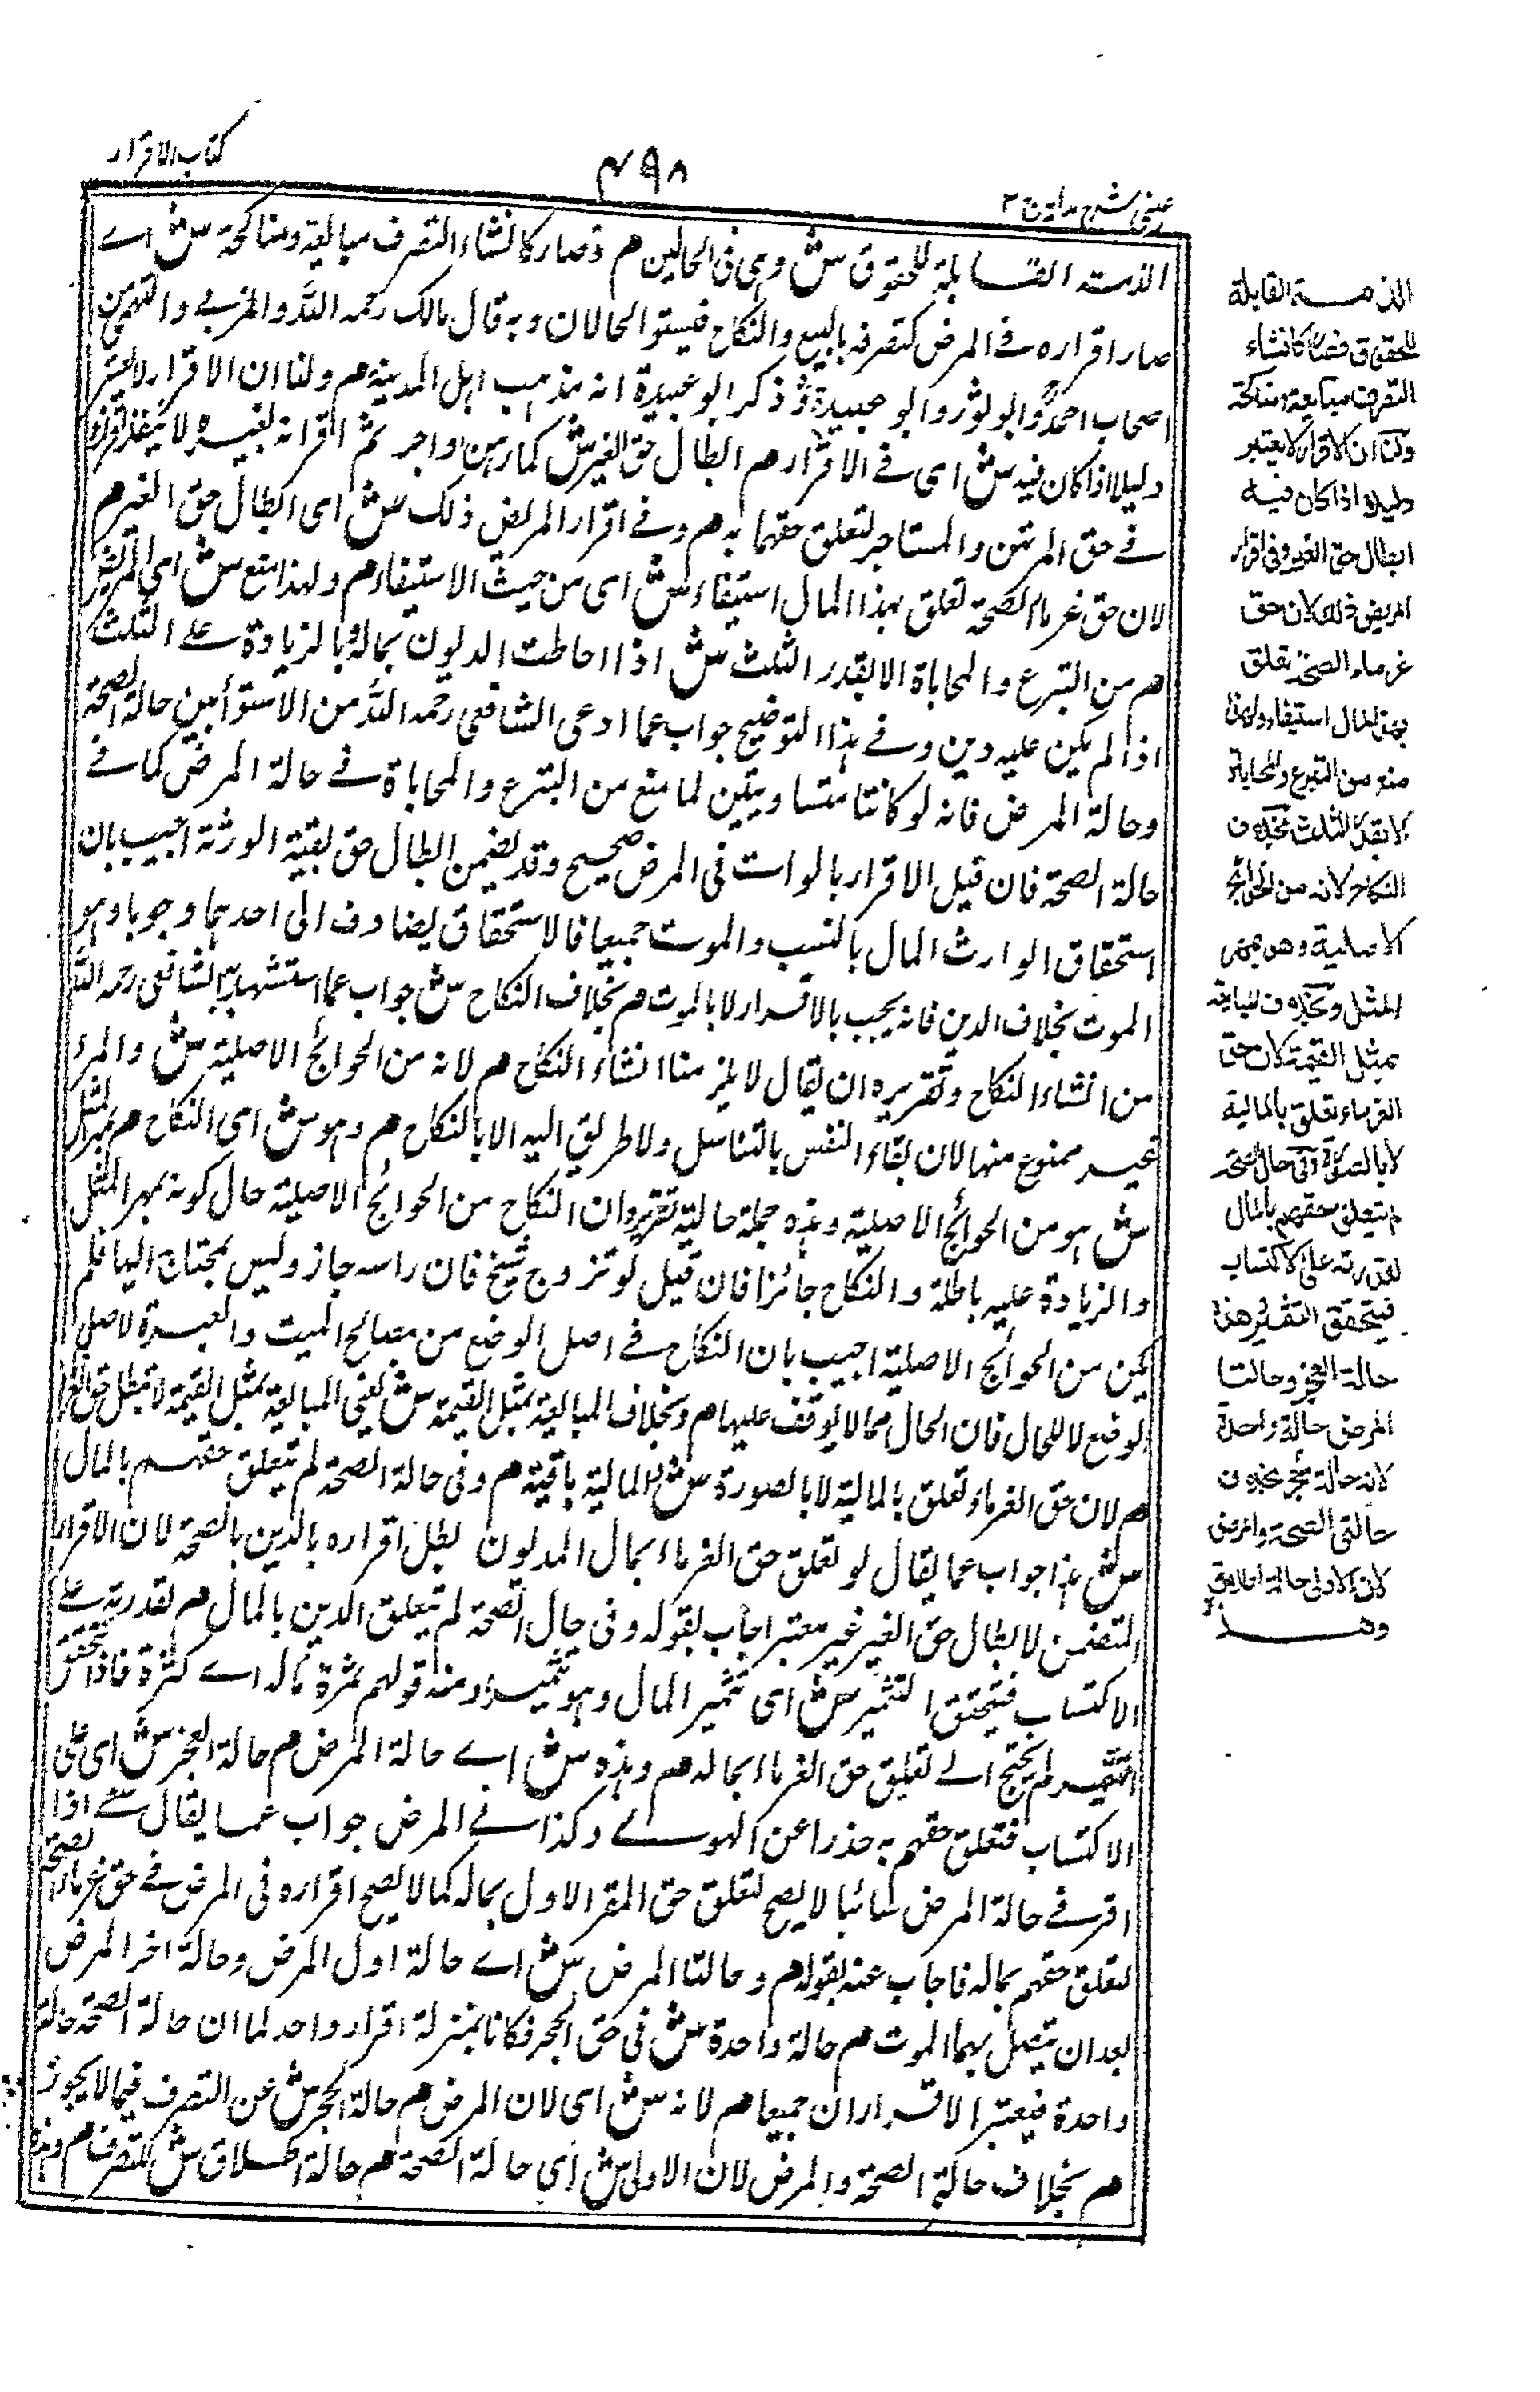 كتاب الاقرار
٤٩٨
عينى شرح هداية ج ٣
الذمة القابلة للحقوق ش وهى فى الحالين م فصار كانشاء التصرف مبايعة ومناكحة ش اے
صار اقراره فے المرض كتصرفه بالبيع والنكاح فيستو الحالان وبه قال مالك رحمه الله والمزنے والتميمى من
اصحاب احمد وابو ثور وابو عبيدة وذكر ابو عبيدة انه مذهب اهل المدينة م ولنا ان الاقرار لا يعتبر
دليلا اذا كان فيه ش اى فے الاقرار م ابطال حق الغير ش كمارهن او اجر ثم اقرانه لغيره لا ينفذ اقراره
فے حق المرتهن والمستاجر لتعلق حقهما به م وفے اقرار المريض ذلك ش اى ابطال حق الغير م
لان حق غرماء الصحة تعلق بهذا المال استيفاء ش اى من حيث الاستيفاء م ولهذا منع ش اى المريض
م من التبرع والمحاباة الا بقدر الثلث ش اذا احاطت الديون بماله وبالزيادة علے الثلث
اذا لم يكن عليه دين وفے هذا التوضيح جواب عما ادعى الشافعى رحمه الله من الاستواء بين حالة الصحة
وحالة المرض فانه لو كانتا متساويتين لما منع من التبرع والمحاباة فے حالة المرض كما فے
حالة الصحة فان قيل الاقرار بالوارث فى المرض صحيح وقد تضمن ابطال حق بقية الورثة اجيب بان
استحقاق الوارث المال بالنسب والموت جميعا فالاستحقاق يضاف الى احدهما وجوبا وهو
الموت بخلاف الدين فانه يجب بالاقرار لا بالموت م بخلاف النكاح ش جواب عما استشهد به الشافعى رحمه الله
من انشاء النكاح وتقريره ان يقال لا يلزمنا انشاء النكاح م لانه من الحوائج الاصلية ش والمرء
غير ممنوع منها لان بقاء النفس بالتناسل ولا طريق اليه الا بالنكاح م وهو ش اى النكاح م بمهر المثل
ش هو من الحوائج الاصلية وهذه جملة حالية تقريره ان النكاح من الحوائج الاصلية حال كونه بمهر المثل
والزيادة عليه باطلة والنكاح جائزا فان قيل لو تزوج شيخ فان راسه جاز وليس بمحتاج اليها فلم
يكن من الحوائج الاصلية اجيب بان النكاح فے اصل الوضع من مصالح الميت والعبرة لاصل
الوضع لا للحال فان الحال مما لا يوقف عليها م وبخلاف المبايعة بمثل القيمة ش يعنى المبايعة بمثل القيمة لا تبطل حق الغرماء
م لان حق الغرماء تعلق بالمالية لا بالصورة ش والمالية باقية م وفى حالة الصحة لم يتعلق حقهم بالمال
ش هذا جواب عما يقال لو تعلق حق الغرماء بمال المديون لبطل اقراره بالدين بالصحة لان الاقرار
المتضمن لابطال حق الغير غير معتبر اجاب بقوله وفى حال الصحة لم يتعلق الدين بالمال م لقدرته علے
الاكتساب فيتحقق التثمير ش اى تثمير المال وهو تثميره ومنه قولهم ثمرة ماله اے كثرة فاذا تحقق
التثمير لم يحتج الے تعليق حق الغرماء بماله م وهذه ش اے حالة المرض م حالة العجز ش اى على
الاكتساب فتعلق حقهم به حذرا عن التوے وكذا فے المرض جواب عما يقال اذا
اقر فے حالة المرض ثانيا لا يصح لتعلق حق المقر الاول بماله كما لا يصح اقراره فى المرض فے حق غرماء الصحة
لتعلق حقهم بماله فاجاب عنه بقوله م وحالتا المرض ش اے حالة اول المرض وحالة اخر المرض
بعد ان يتصل بهما الموت م حالة واحدة ش فى حق الحجر فكانا بمنزلة اقرار واحد لما ان حالة الصحة حالة
واحدة فيعتبر الاقراران جميعا م لانه ش اى لان المرض م حالة الحجر ش عن التصرف فيما لا يجوز
م بخلاف حالة الصحة والمرض لان الاولى ش اى حالة الصحة م حالة اطلاق ش للتصرف م وهذه
الذمة القابلة
للحقوق فصار كانشاء
التصرف مبايعة ومناكحة
ولنا ان الاقرار لا يعتبر
دليلا اذا كان فيه
ابطال حق الغير وفى اقرار
المريض ذلك لان حق
غرماء الصحة تعلق
بهذا المال استيفاء ولهذا
منع من التبرع والمحاباة
الا بقدر الثلث بخلاف
النكاح لانه من الحوائج
الاصلية وهو بمهر
المثل وبخلاف المبايعة
بمثل القيمة لان حق
الغرماء تعلق بالمالية
لا بالصورة وفى حال الصحة
لم يتعلق حقهم بالمال
لقدرته على الاكتساب
فيتحقق التثمير وهذه
حالة العجز وحالتا
المرض حالة واحدة
لانه حالة حجر بخلاف
حالتى الصحة والمرض
لان الاولى حالة اطلاق
وهذه